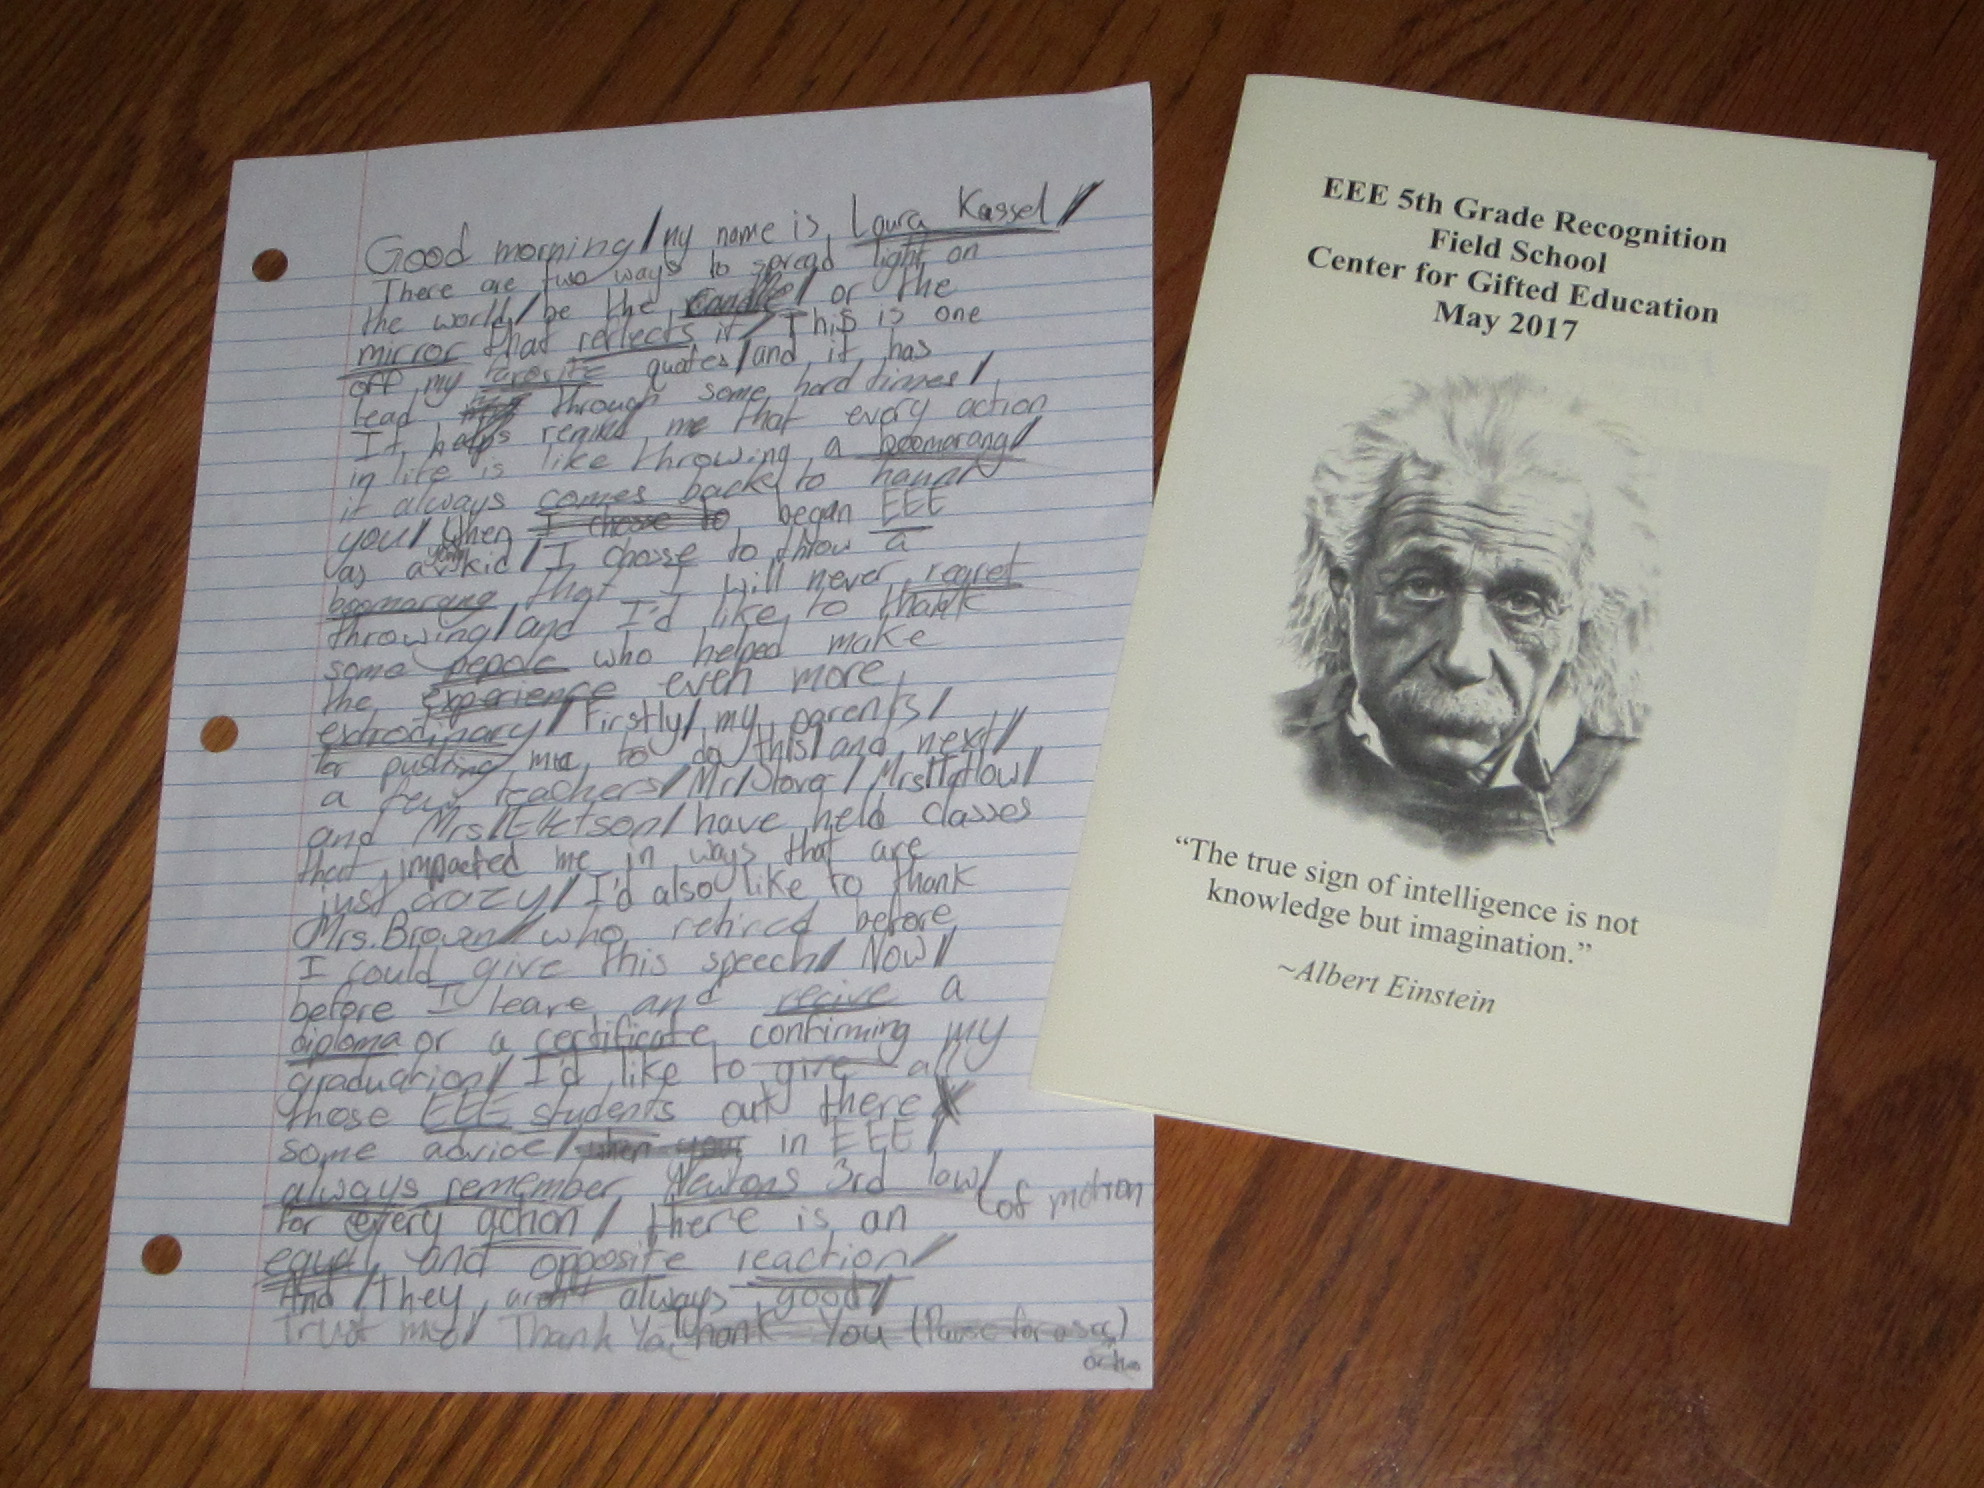 Good morning/my name is Laura Kassel/
There are two ways to spread light on
the world/be the candle/ or the
mirror that reflects it/This is one
off my quotes/and it has
lead through some hard times/
It helps remind me that every action
in life is like throwing a boomarang/
it always comes back to
you/When began EEE
as a kid/I chosse to throw a
boomarang that I will never regret
throwing/and I'd like to thank
some pepole who helped make
the experience even more
extrodinary/Firstly/my parents/
for pushing me to do this/and next/
a few teachers/Mr/ / Mrs/ /
and Mrs/ / have held classes
that impacted me in ways that are
just crazy/I'd also like to thank
Mrs. Brown/who retired before
I could give this speech/ Now/
before I leave and recive a
diploma or a certificate confirming my
graduation/ I'd like to give all
those EEE students out there
some advice/ in EEE/
always remember Newtons 3rd law/ of motion
for every action/ there is an
equal and opposite reaction/
And/They aren't always good/
Trust me/ Thank Thank You (Pause for
EEE 5th Grade Recognition
Field School
Center for Gifted Education
May 2017
“The true sign of intelligence is not
knowledge but imagination.”
~Albert Einstein